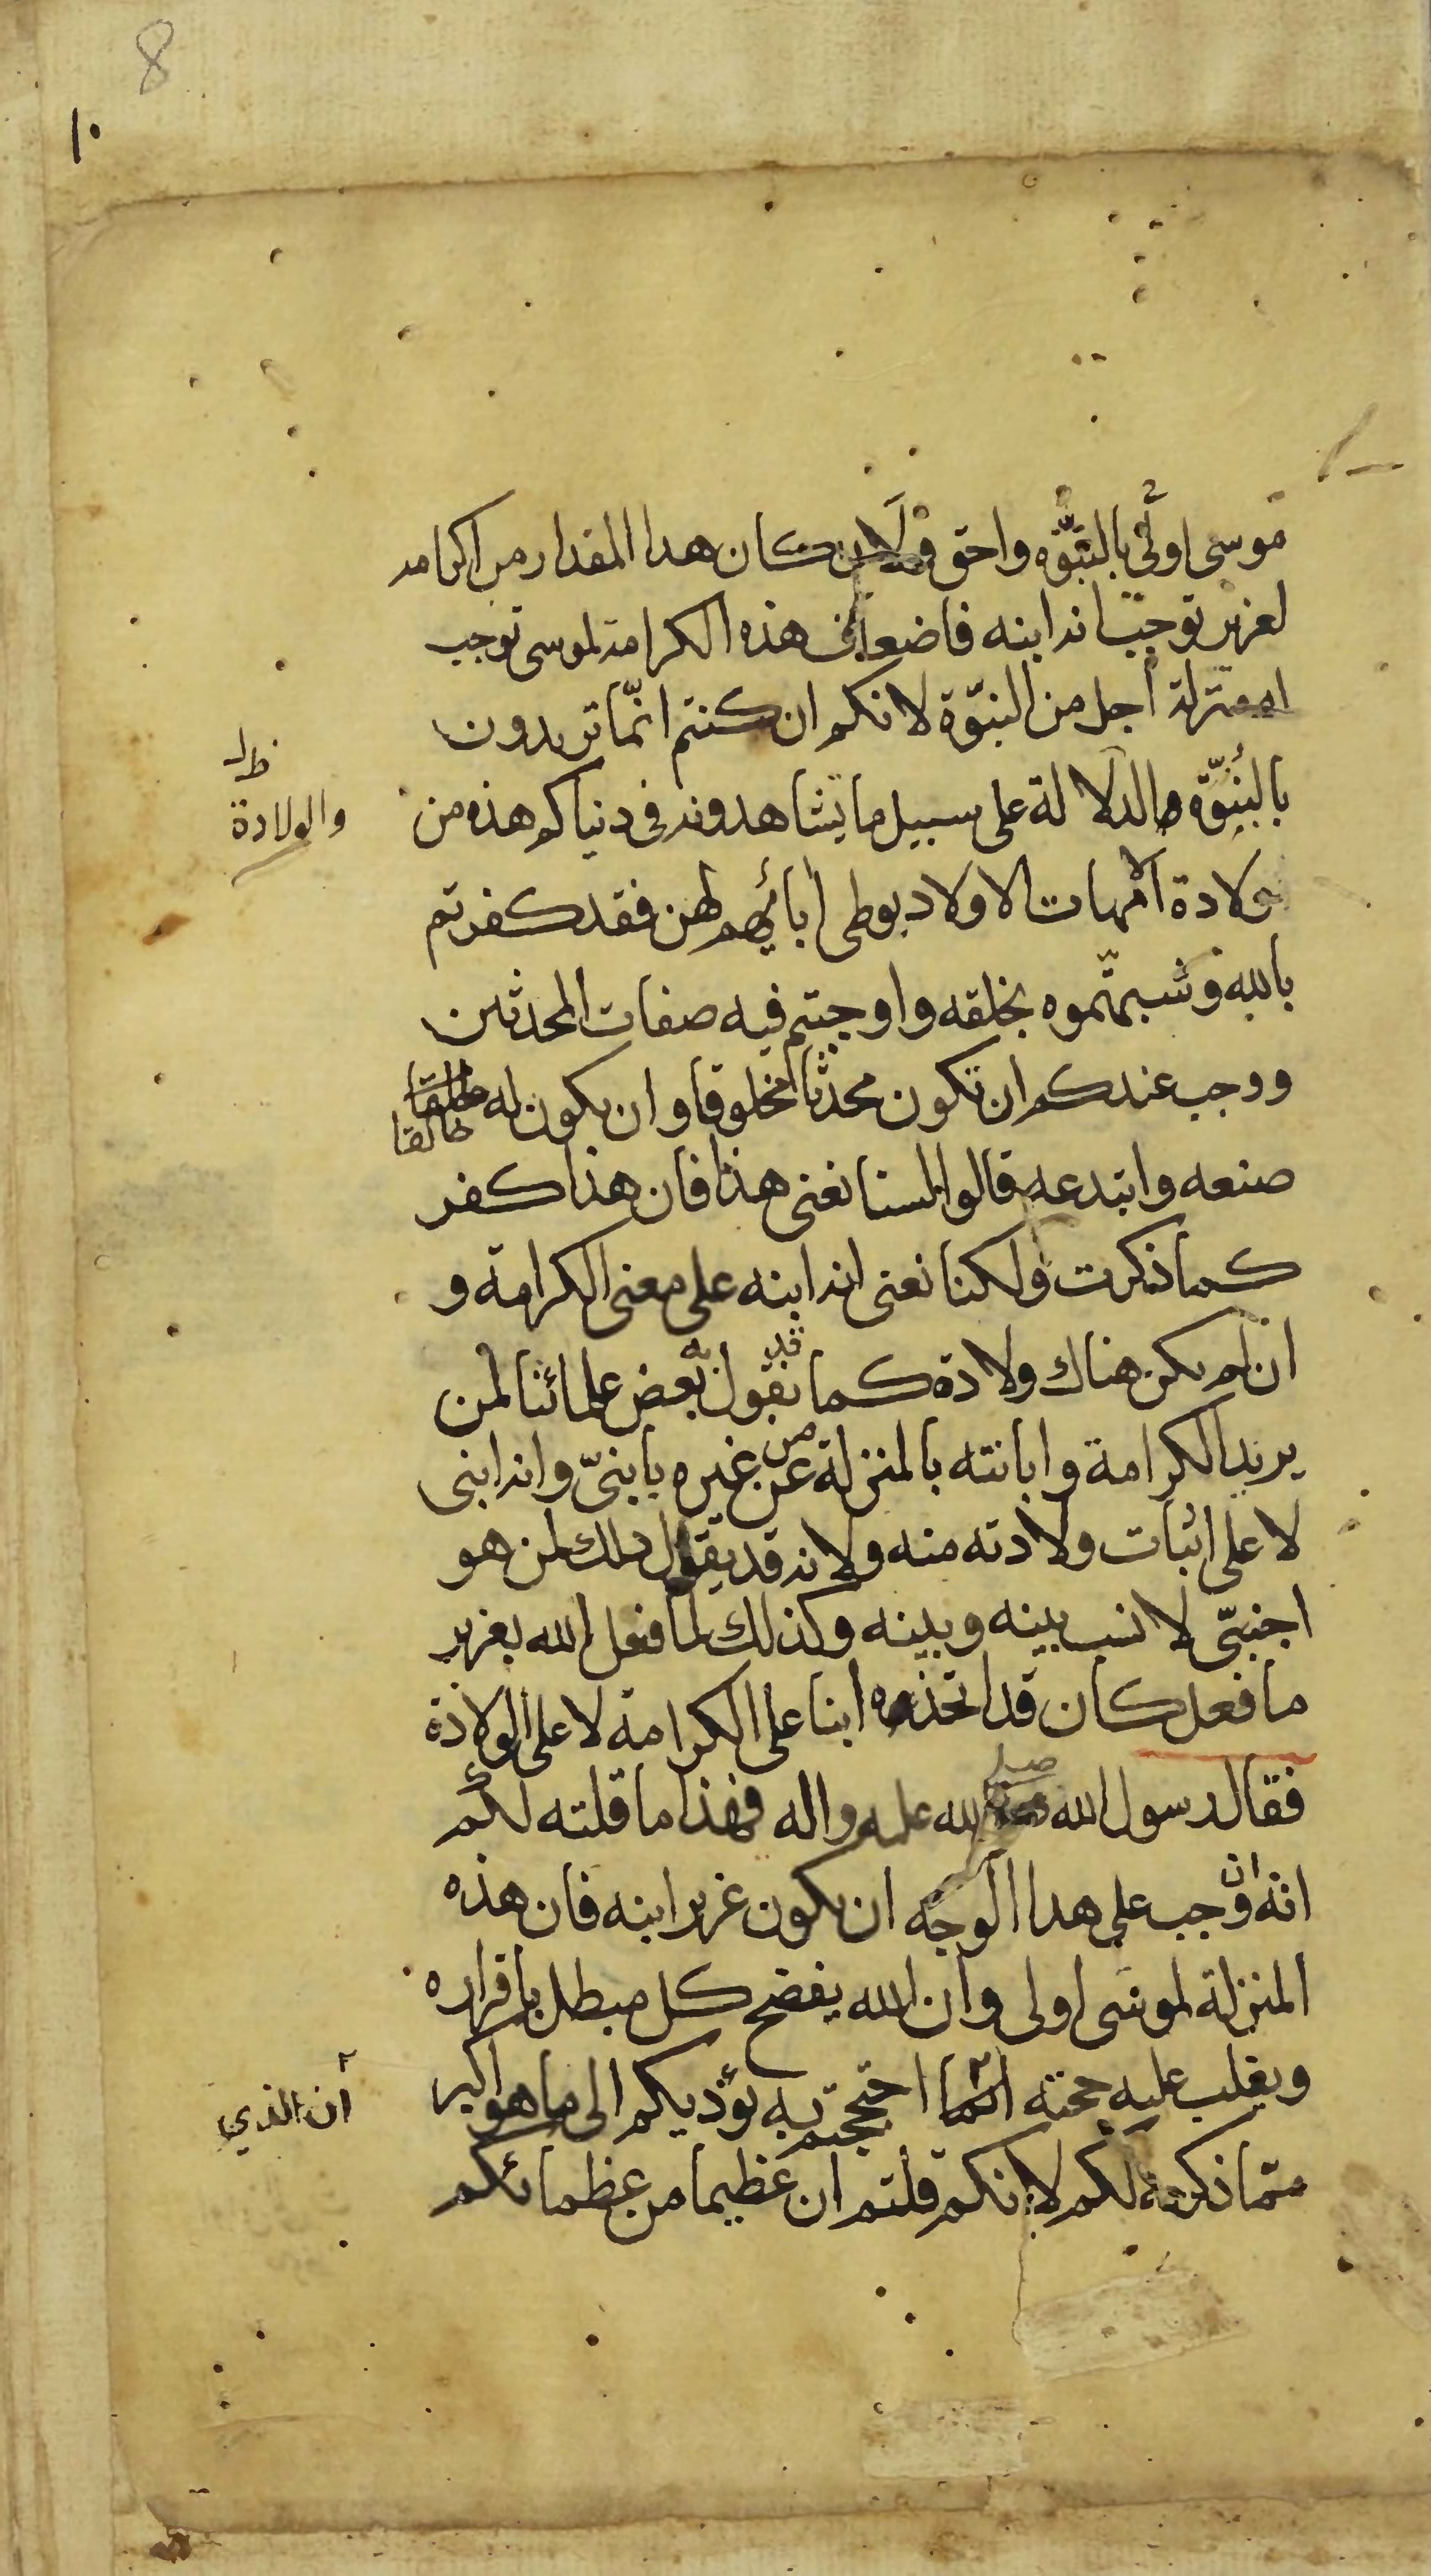 8
١٠
موسى اولى بالبنوّة واحق ولان كان هدا المقدار من اكرامه
لعزير توجب انه ابنه فاضعاف هذه الكرامة لموسى توجب
له منزلة اجل من البنوّة لانكم ان كنتم انّما تريدون
بالبنوّة الدلالة على سبيل ما تشاهدونه فى دنياكم هذه من
والولادة
ولادة الامهات الاولاد بوطى ابائهم لهن فقد كفرتم
بالله وشبهتموه بخلقه واوجبتم فيه صفات المحدثين
ووجب عندكم ان يكون محدثا مخلوقا وان يكون له خالقا
خالقا
صنعه وابتدعه قالوا لسنا نعنى هذا فان هذا كفر
كما ذكرت ولكنا نعنى انه ابنه على معنى الكرامة و
ان لم يكن هناك ولادة كما قد يقول بعض علمائنا لمن
يريد الكرامة وابانته بالمنزلة عن من غيره يا بنىّ وانه ابنى
لا على اثبات ولادته منه ولانه قد يقول ذلك لمن هو
اجنبىّ لا نسب بينه وبينه وكذلك لما فعل الله بعزير
ما فعل كان قد اتخذه ابنا على الكرامة لا على الولادة
فقال رسول الله صلى الله عليه واله فهذا ما قلته لكم
انه ان وجب على هدا الوجه ان يكون عزير ابنه فان هذه
المنزلة لموسى اولى وان الله يفضح كل مبطل باقراره
ويقلب عليه حجته انما احتججتم به يؤديكم الى ما هو اكبر
ان الذي
مما ذكرته لكم لانكم قلتم ان عظيما من عظمائكم